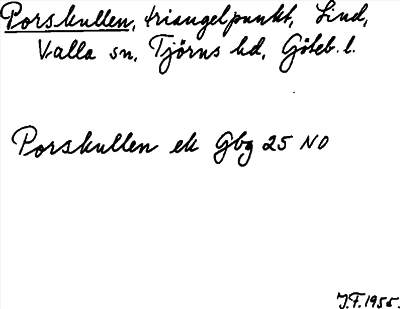 Porskullen, triangelpunkt, Lind,
Valla sn, Tjörns hd, Göteb. l.
Porskullen ek Gbg 25 NO
J.F. 1955.